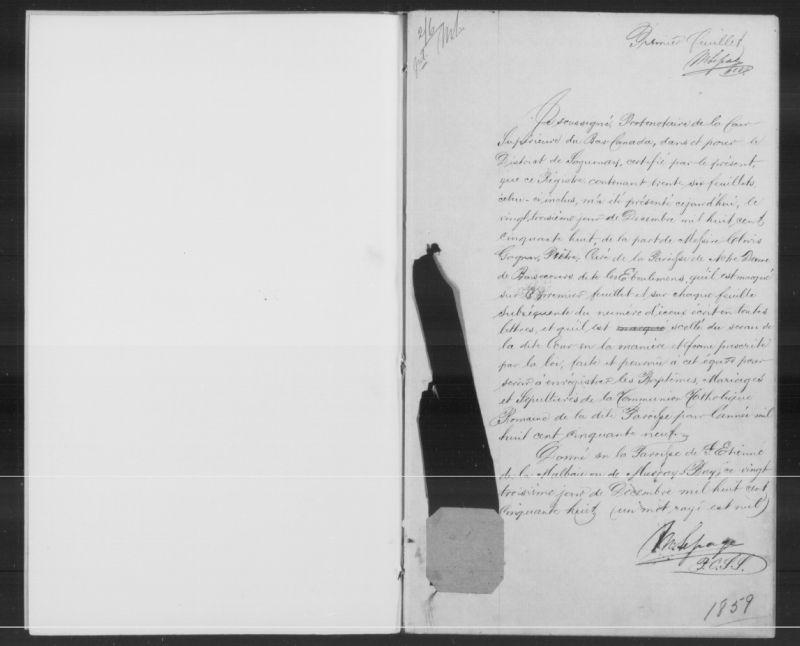 2/6
Premier feuillet
MLepage
P.C.S.
Je soussigné, Protonotaire de la Cour
Supérieure du Bas Canada, dans et pour le
District de Saguenay, certifié par le présent,
que ce Régistre, contenant trente six feuillets,
celui-ci, inclus, m'a été présenté cejourd'hui, le
vingt troisième jour de Décembre mil huit cent
cinquante huit, de la part de Messire Clovis
Gagnon, Prêtre, Curé de la Paroisse de Notre Dame
de Bonsecours dite les Eboulemens, qu'il est marqué
sur le premier feuillet et sur chaque feuille
subséquente du numéro d'iceux écrit en toutes
lettres, et qu'il est marqué scellé du sceau de
la dite Cour en la manière et forme prescrite
par la loi, faite et pourvue à cet égard pour
servir à enrégistrer les Baptêmes, Mariages
et Sépultures de la Communion Catholique
Romaine de la dite Paroisse pour l'année mil
huit cent cinquante neuf.
Donné en la Paroisse de St Etienne
de la Malbaie ou de Murray Bay, ce vingt
troisième jour de Décembre mil huit cent
cinquante huit (un mot rayé est nul)
MLepage
P.C.S.S.
1859